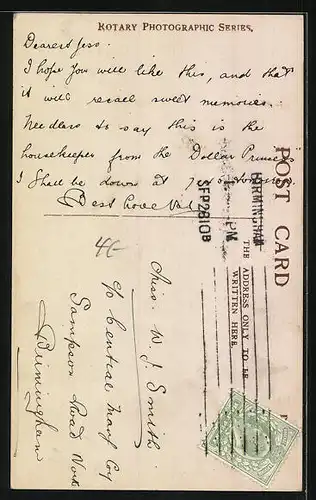 ROTARY PHOTOGRAPHIC SERIES.
Dearest Jess.
I hope you will like this, and that
it will recall sweet memories.
Needless to say this is the
housekeeper from the Dollar Princess
I shall be down at 7
Best love Val
4/-
POST CARD
THE ADDRESS ONLY TO BE
WRITTEN HERE.
BIRMINGHAM
PM
SEP 28 10
Miss. W. J. Smith.
c/o Central Manf Coy
Sampson Road North
Birmingham